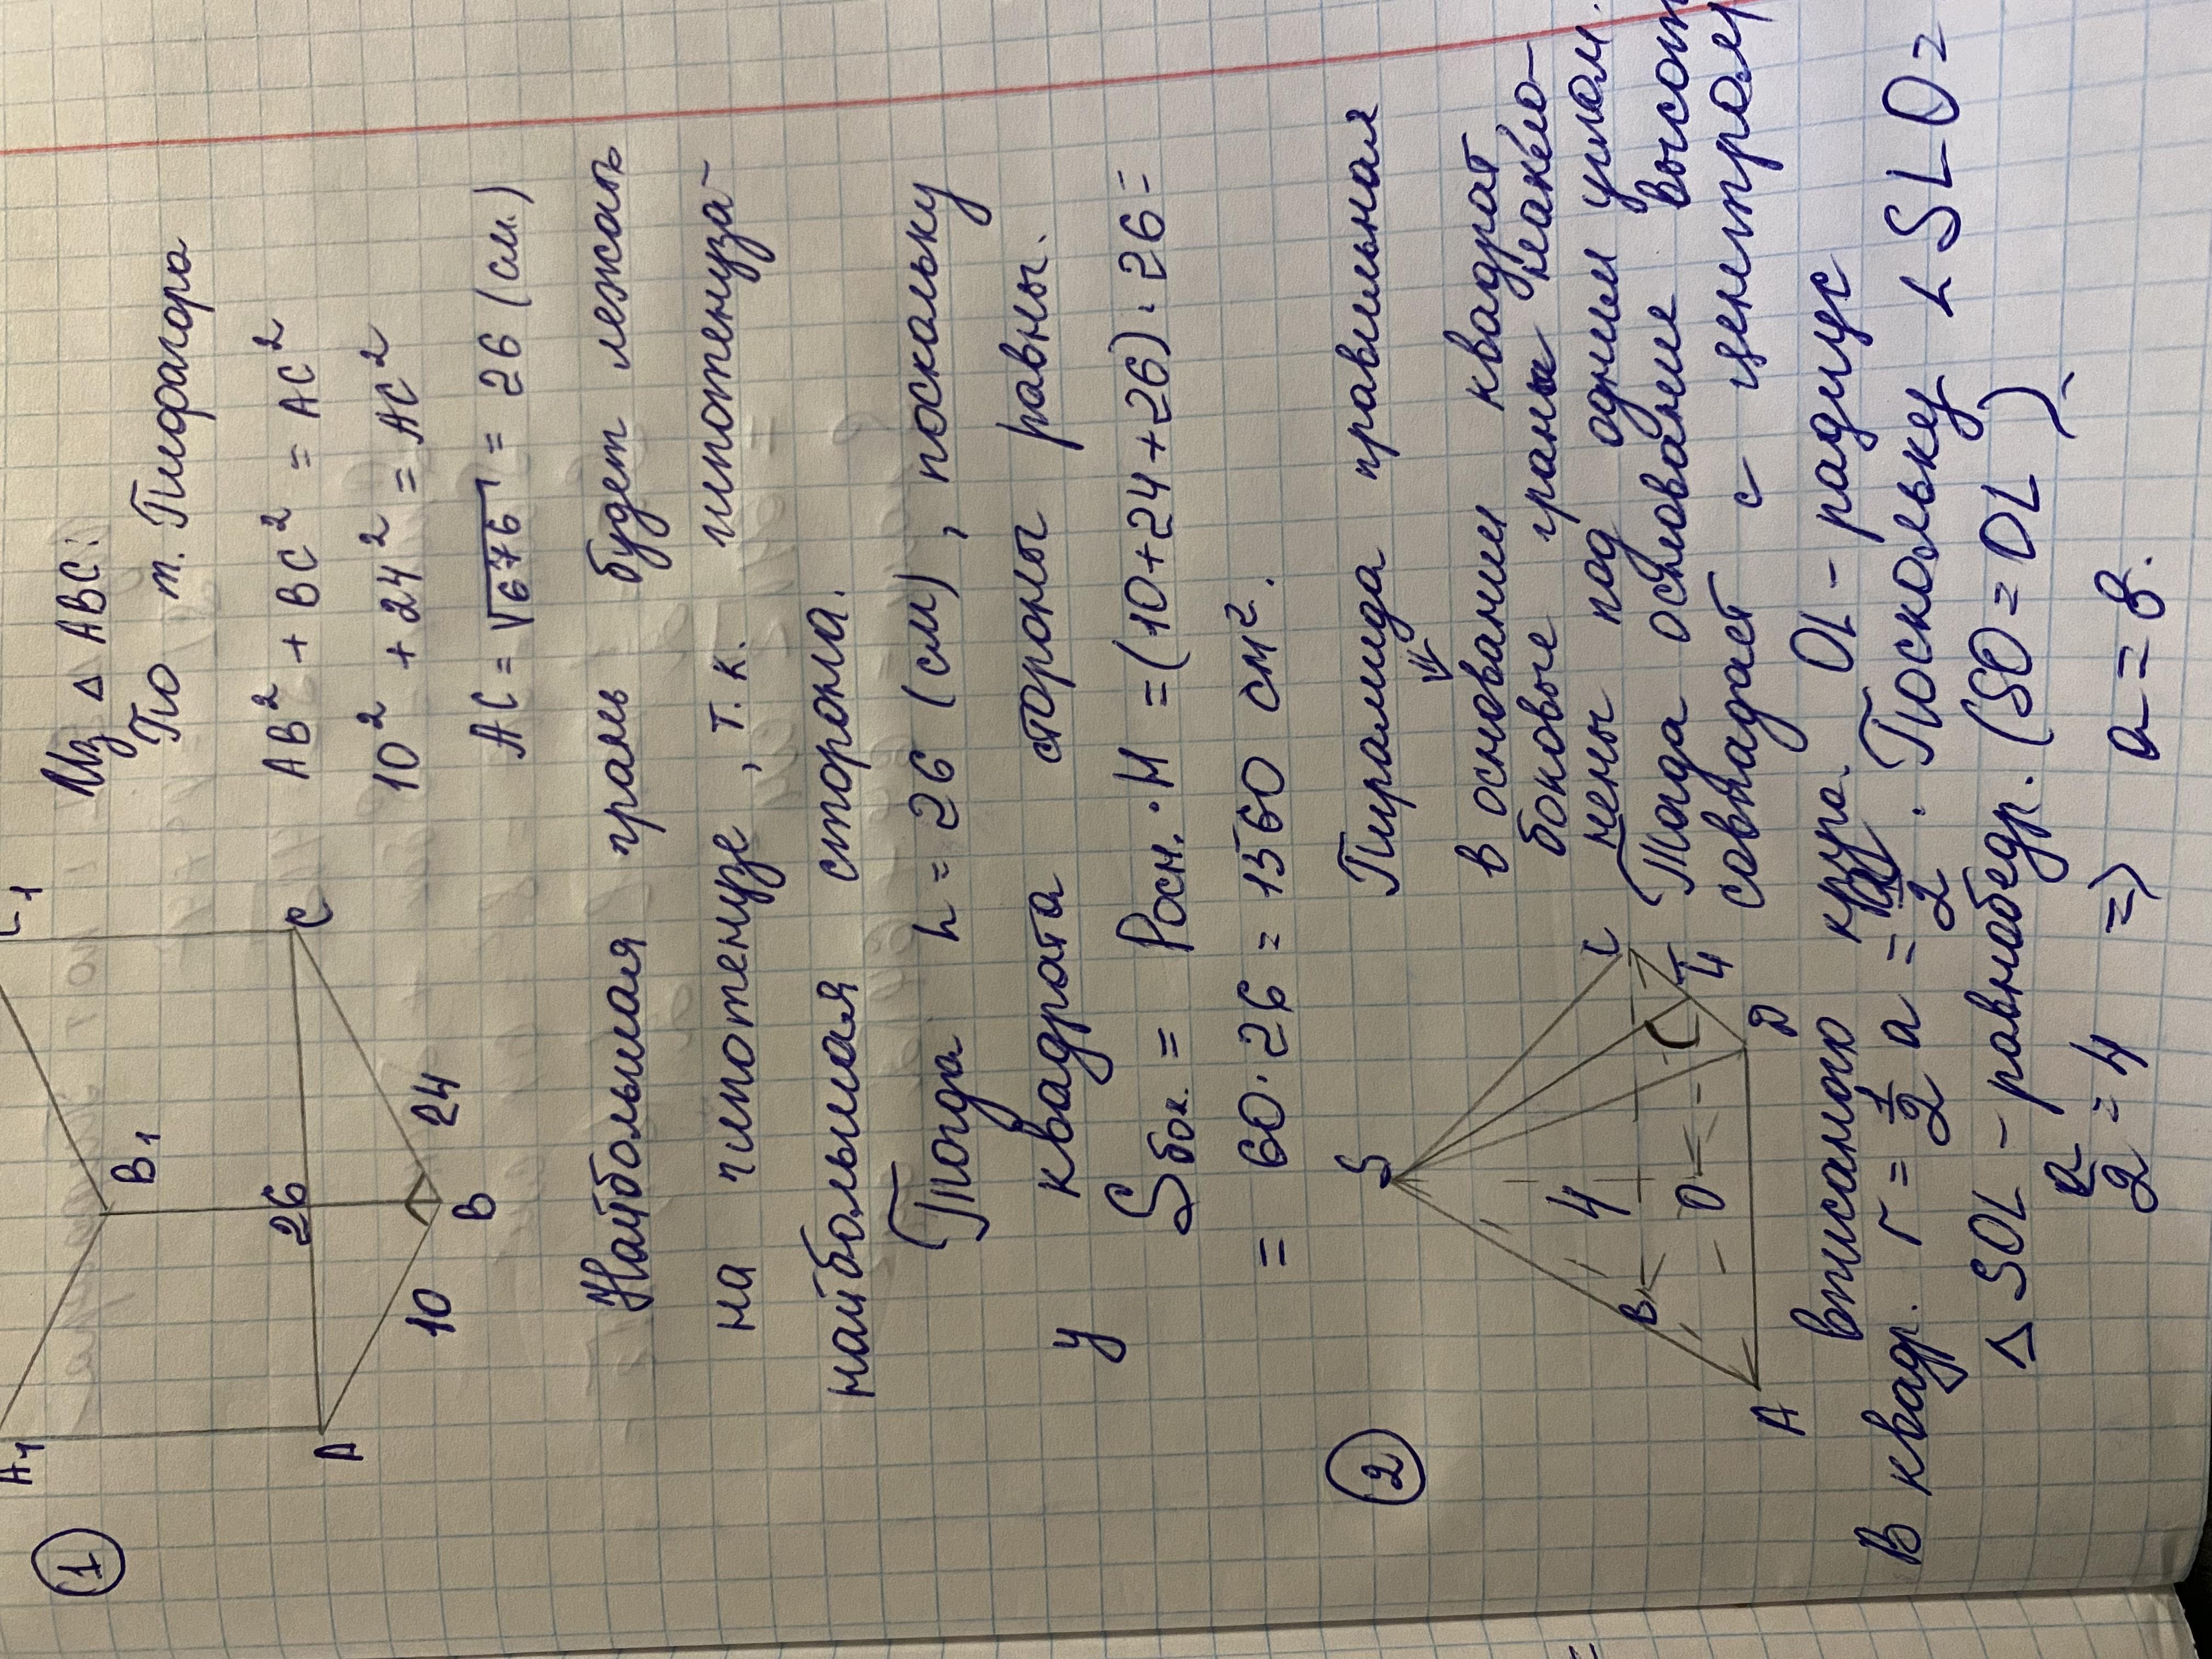 ①
Из △ ABC:
По т. Пифагора
AB² + BC² = AC²
10² + 24² = AC²
AC = √676 = 26 (см.)
A₁
B₁
C₁
26
A
C
10
24
B
Наибольшая грань будет лежать
на гипотенузе, т.к. гипотенуза -
наибольшая сторона.
Тогда h = 26 (см), поскольку
у квадрата стороны равны.
Sбок. = Pосн. · H = (10+24+26) · 26 =
= 60 · 26 = 1560 см².
②
Пирамида правильная
⇓
в основании квадрат
боковые грани накло-
нены под одним углом.
Тогда основание высот
совпадает с центром
S
4
B
C
O
L
4
A
D
вписаного круга. OL - радиус
В квадр. r = 1/2 a = a/2. Поскольку ∠SLO =
△ SOL - равнобедр. (SO = OL)
a/2 = 4 => a = 8.